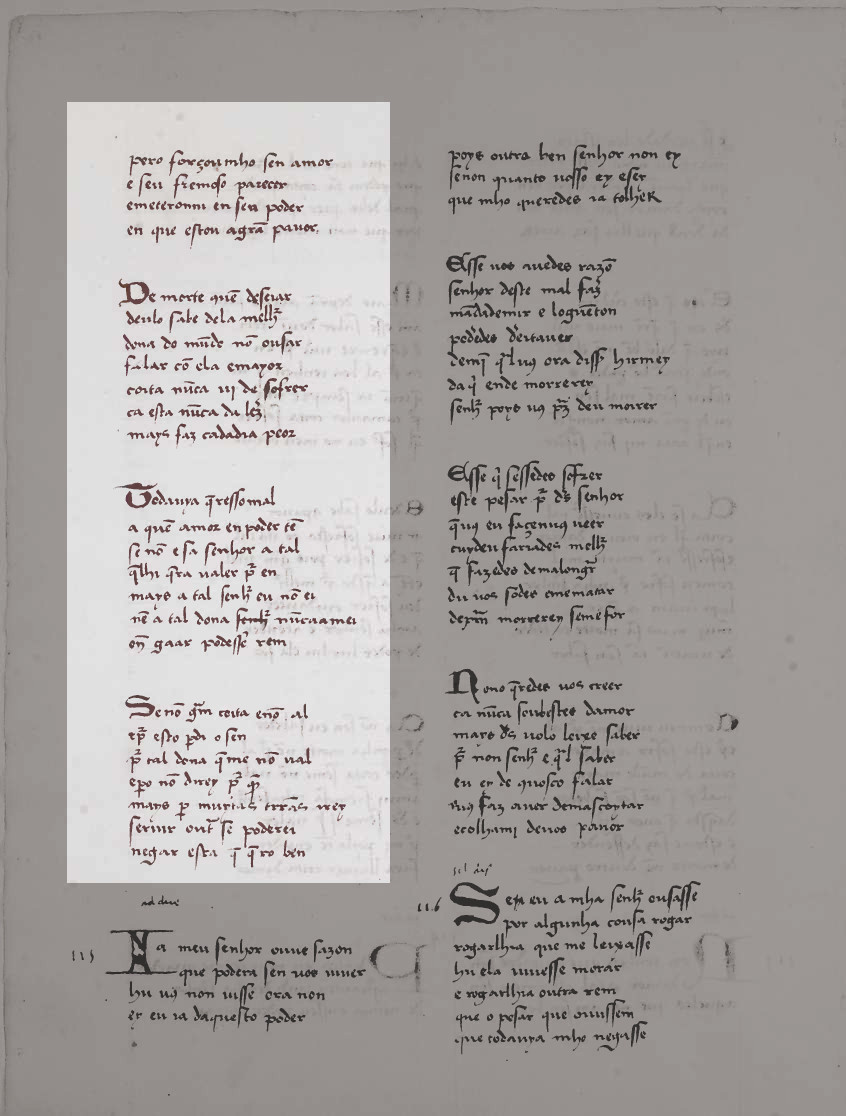 pero forçoumho sen amor
e seu fremoso parecer
emeteronmi en seu poder
en que estou agrã pauor
De morte quē deseiar
deulo sabe dela melhʼr
dona do mūdo nō ousar
falar cō ela emayor
coita nūca ui de sofrer
ca esta nūca da lezʼ
mays faz cadadia peor
Todauya q̄resso mal
a quē amor en poder tē
se nō esa senhor a tal
q̄lhi q̄ra ualer p̄r en
mays a tal senhʼr eu nō ei
nē a tal dona senhʼr nūca amei
on̄ gaar podesseʼ rem
Se nō grʼm coita enō al
ep̄r esto pdi o sen
p̄r tal dona q̄me nō ual
epo nō direy p̄r q̄m
mays p̱ muitas tr̄ras irey
seruir outʼr se poderei
negar esta q̄ q̄ro ben
ad dauc
115
Na meu senhor ouue sazon
que podera sen uos uiuer
hu uꝯ non uisse ora non
er eu ia daquesto poder
poys outro ben senhor non ey
senon quanto uosso ey eser
que mho queredes ia tolher
Esse uos auedes razō
senhor deste mal fazʼ
mādademir e loguēton
podedes deitauer
demi q̄l uꝯ ora dissʼ hirmey
da q̄ ende morrerey
senhʼr poys uꝯ p̄z deu morrer
Esse q̄ sessedes sofrer
este pesar p̄r ds̄ senhor
q̄uꝯ eu façenuꝯ ueer
cuydeu fariades melhʼr
q̄ fazedes demalongʼr
du uos sodes emematar
deprn̄ morrerey semesor
Nono q̄redes uos creer
ca nūca soubestes damor
mays ds̄ uolo leyxe saber
p̄r non senhʼr e q̄l sabor
eu er de quosco falar
uꝯ faz auer demascontar
ecolhami deuos pauor
116
Se eu a mha senhʼr ousasse
por algunha cousa rogar
rogarlhia que me leixasse
hu ela uiuesse morar
e rogarlhia outra rem
que o pesar que ouuissem
que todauya mho negasse